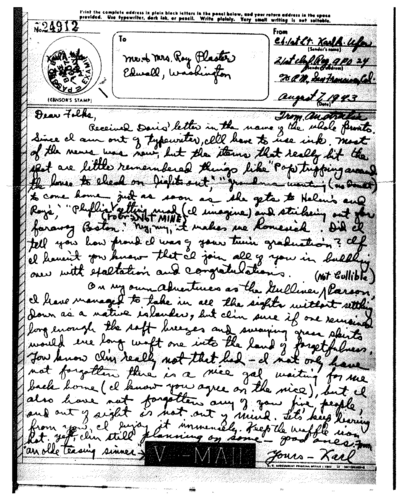 Print the complete address in plain block letters in the panel below, and your return address in the space
provided. Use typewriter, dark ink, or pencil. Write plainly. Very small writing is not suitable.
No. 24912
To
From
Mr. & Mrs. Roy Plaster
Edwall, Washington
(Sender's name)
(Sender's address)
August 7, 1943
(Date)
(CENSOR'S STAMP)
From Australia
Dear Folks,
Received Doris' letter in the name of the whole
Since I am out of typewriter, I'll have to use ink. Most
of the news was new, but the items that really hit the
spot are little remembered things like "Pop tripping around
the house to check on lights out," "grandma wanting
to come home just as soon as she gets to Helen's and
Roy's," "Phyllis getting mad (I imagine) and striking out for
(FOR NOT MINE)
faraway Boston." My, my, it makes me homesick. Did I
tell you how proud I was of your twin graduation? If
I haven't you know that I join all of you in bubbling
over with exaltation and congratulations.
(Not Gullible)
On my own adventures as the Gulliver Parson
I have managed to take in all the sights without settling
down as a native islander, but I'm sure if one remained
long enough the soft breezes and swaying grass skirts
would ere long waft one into the land of forgetfulness.
You know I'm really not that bad - I not only have
not forgotten there is a nice gal waiting for me
back home (I know you agree on the nice), but I
also have not forgotten any of your five people
and out of sight is not out of mind. Let's keep hearing
from you, I enjoy it immensely. Keep the waffle iron
hot. Yep, I'm still planning on some - good ones in
an old teasing sinner -
Yours - Karl
V - MAIL